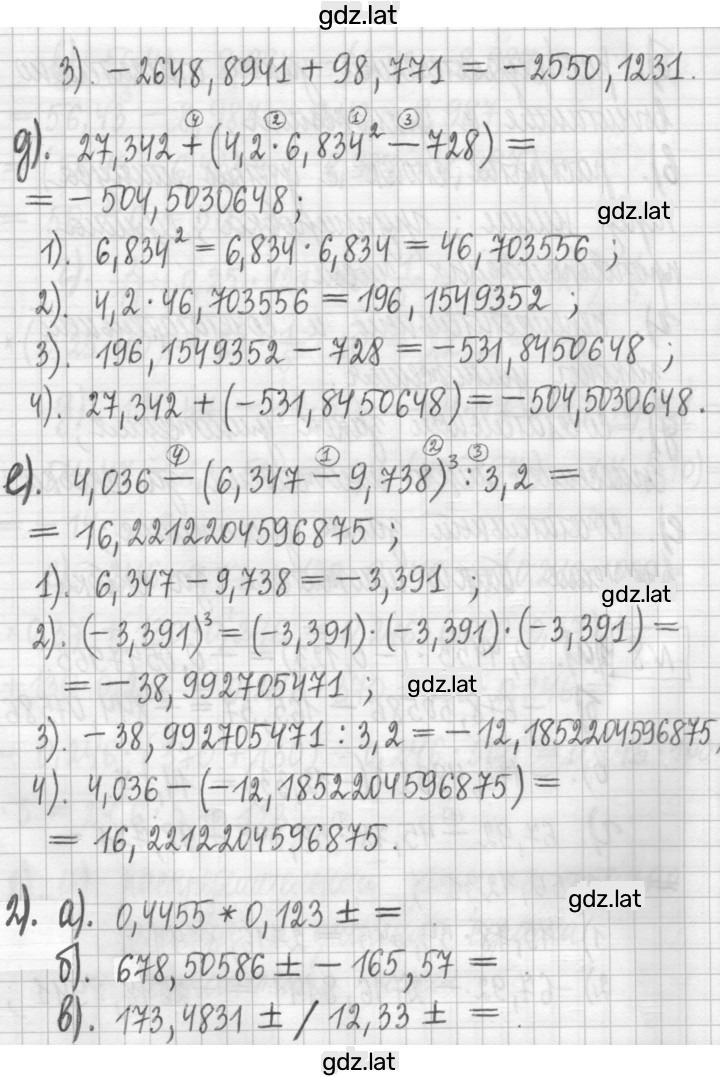 gdz.lat
3). -2648,8941 + 98,771 = -2550,1231.
④ ② ① ③
д). 27,342 + (4,2 · 6,834² - 728) =
= -504,5030648;
gdz.lat
1). 6,834² = 6,834 · 6,834 = 46,703556 ;
2). 4,2 · 46,703556 = 196,1549352 ;
3). 196,1549352 - 728 = -531,8450648 ;
4). 27,342 + (-531,8450648) = -504,5030648.
④ ① ② ③
е). 4,036 - (6,347 - 9,738)³ : 3,2 =
= 16,2212204596875 ;
1). 6,347 - 9,738 = -3,391 ;
gdz.lat
2). (-3,391)³ = (-3,391) · (-3,391) · (-3,391) =
= -38,992705471 ;
gdz.lat
3). -38,992705471 : 3,2 = -12,1852204596875,
4). 4,036 - (-12,1852204596875) =
= 16,2212204596875.
gdz.lat
2). а). 0,4455 * 0,123 ± =
б). 678,50586 ± - 165,57 = .
в). 173,4831 ± / 12,33 ± = .
gdz.lat